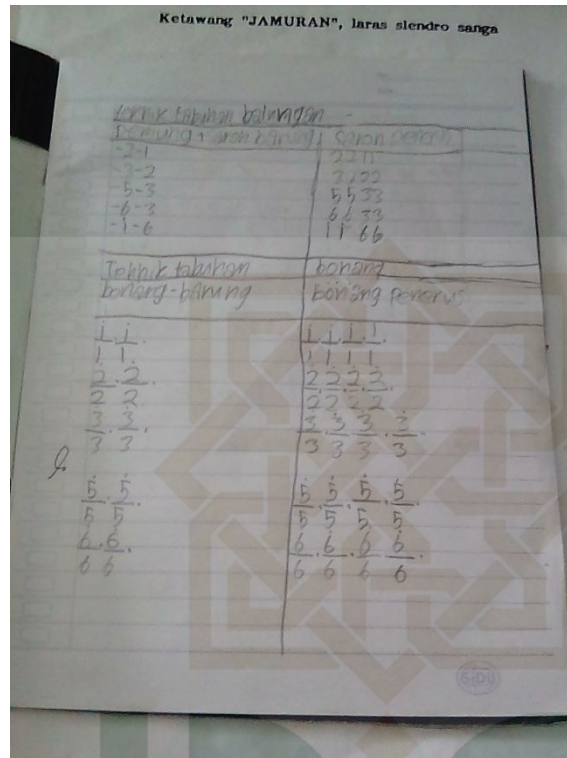 Ketawang "JAMURAN", laras slendro sanga
teknik tabuhan balungan
Demung, saron barung saron penerus
-2-1 2211
-3-2 3322
-5-3 5533
-6-3 6633
-1-6 11 66
Teknik tabuhan bonang
bonang-barung bonang penerus
i . i . i . i . i . i
1 1. 1 1 1 1
2̇ . 2̇ . 2̇ . 2̇ . 2̇ . 2̇ .
2 2 2 2 2 2
3̇ . 3̇ . 3̇ . 3̇ . 3̇ . 3̇
3 3 3 3 3 3
5̇ . 5̇ . 5̇ . 5̇ . 5̇ . 5̇
5 5 5 5 5 5
6̇ . 6̇ . 6̇ . 6̇ . 6̇ . 6̇ .
6 6 6 6 6 6